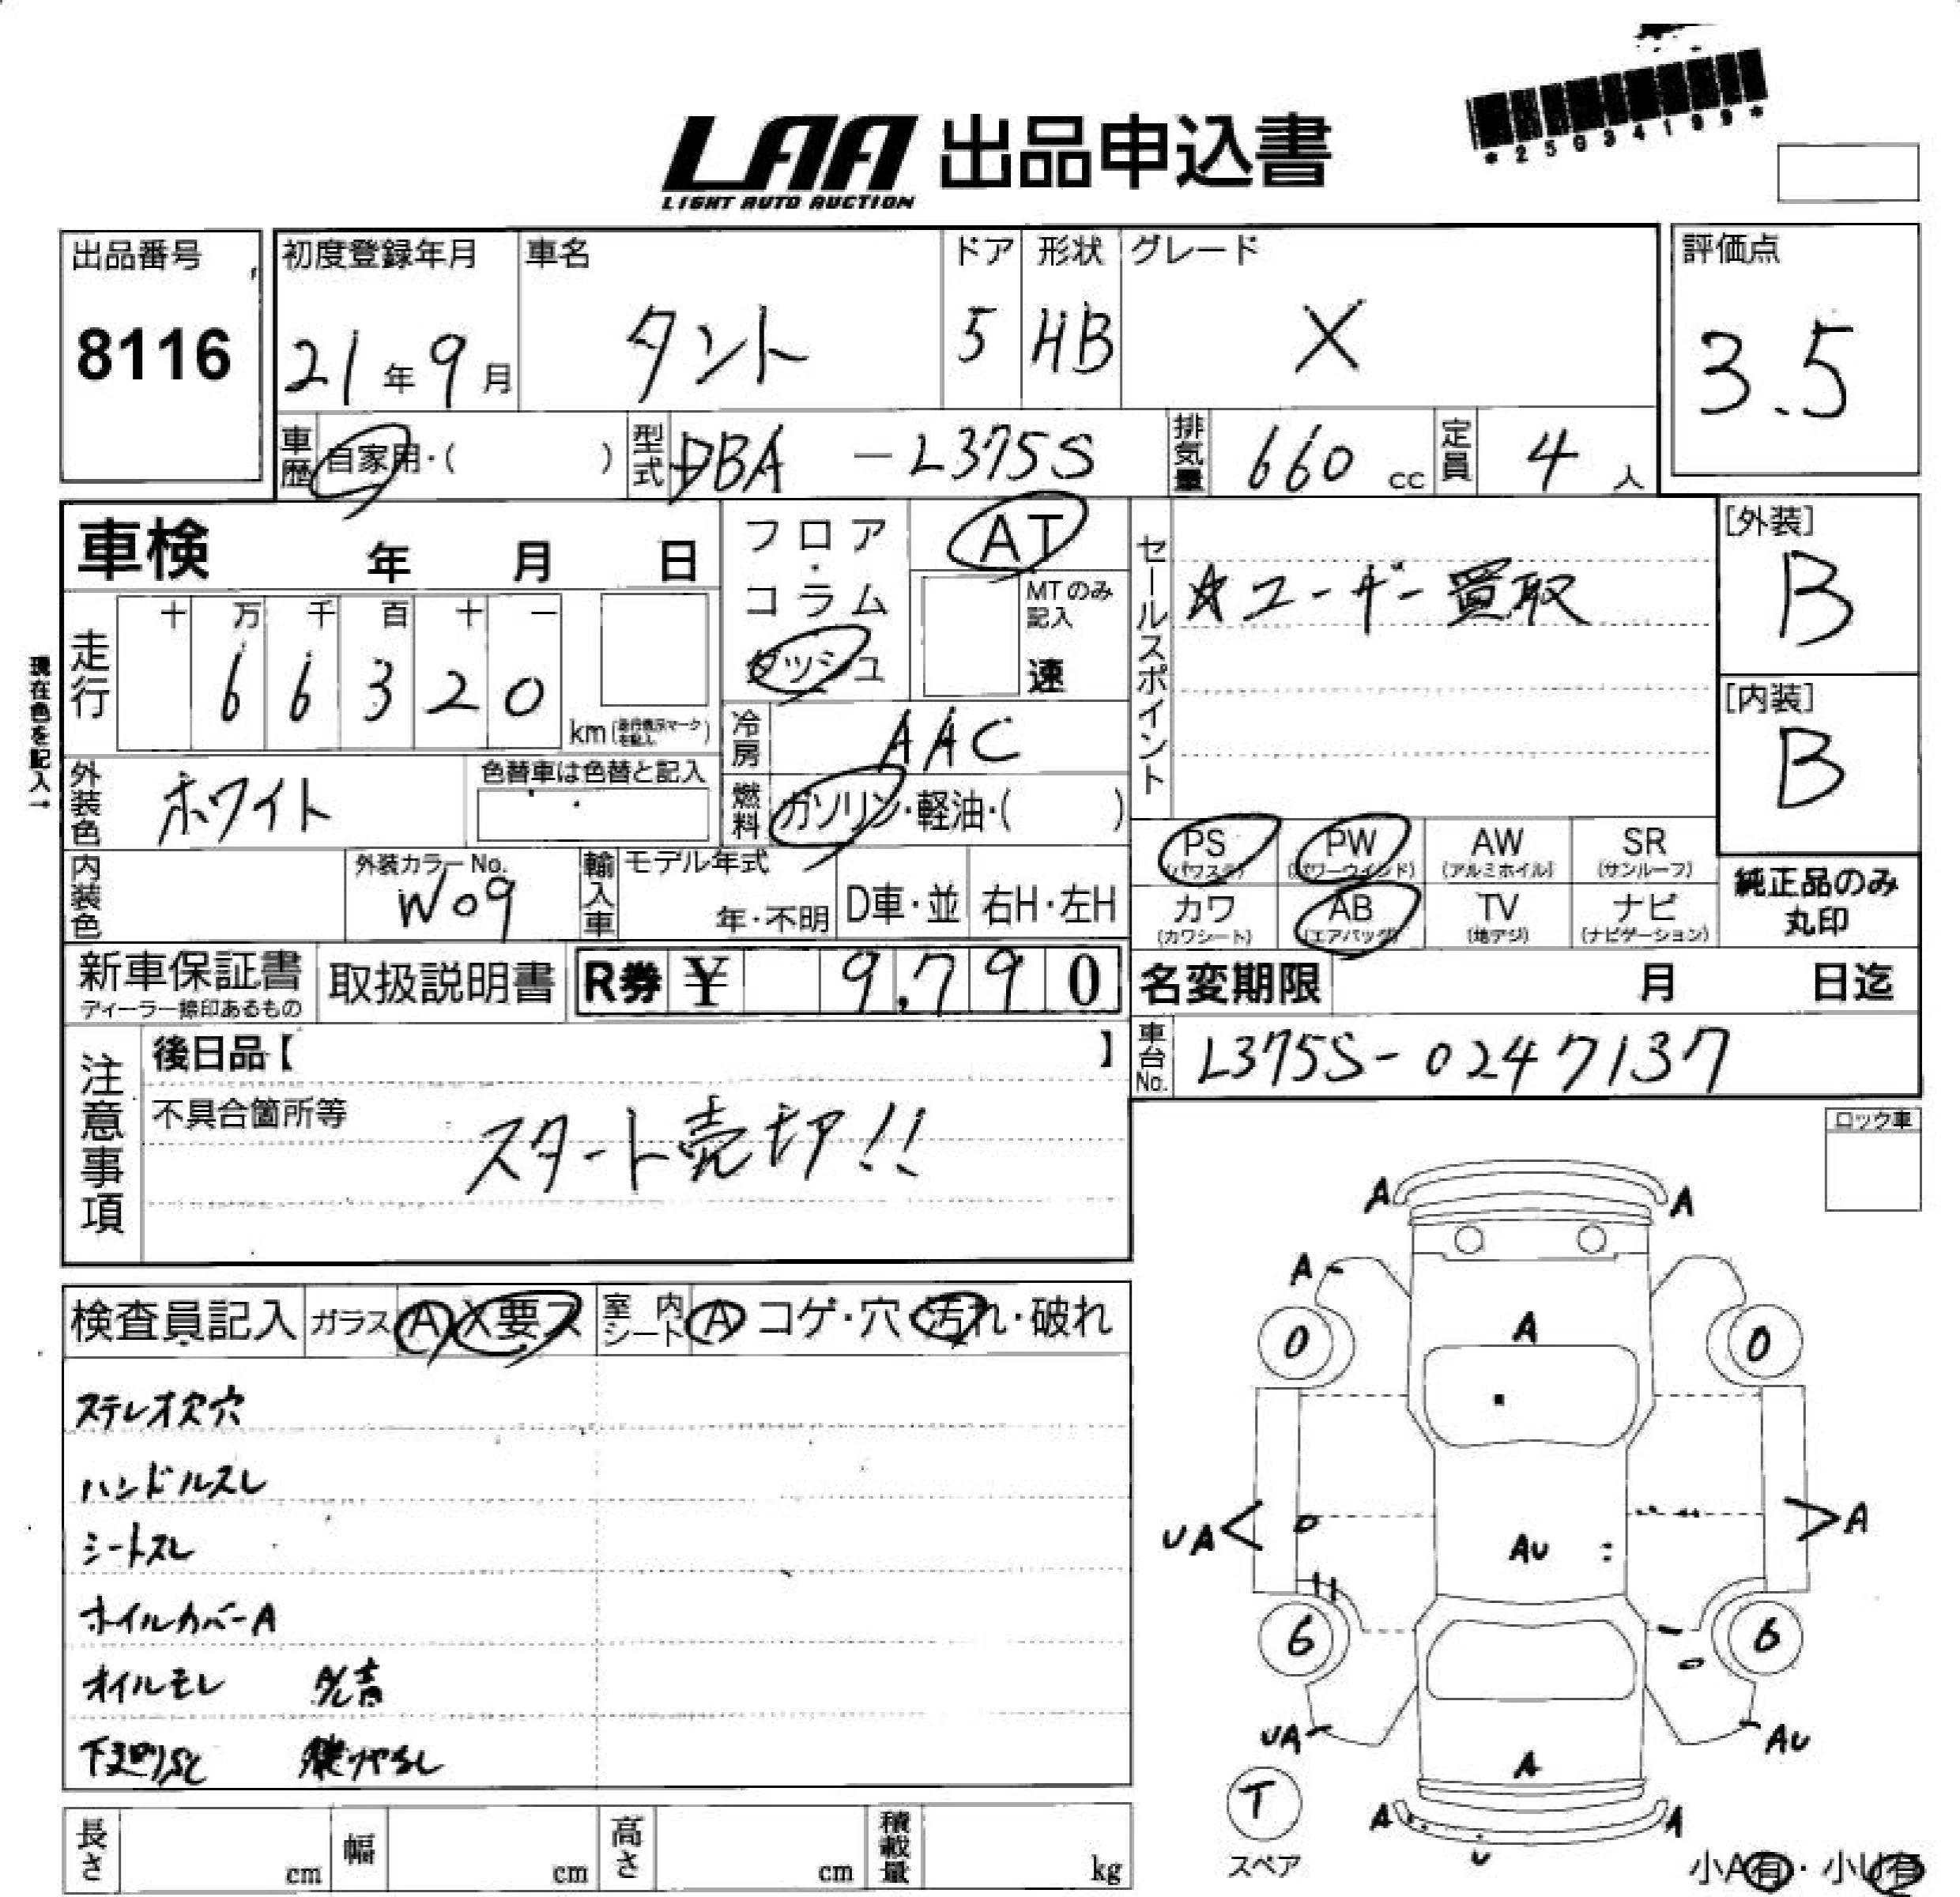 *25034199*
LAA 出品申込書
LIGHT AUTO AUCTION
出品番号 初度登録年月 車名 ドア 形状 グレード 評価点
8116 21年9月 タント 5 HB X 3.5
車歴 自家用・( ) 型式 DBA-L375S 排気量 660cc 定員 4人
車検 年 月 日
フロア・コラム ダッシュ
AT
MTのみ記入 速
セールスポイント
☆ユーザー買取
[外装]
B
[内装]
B
現在色を記入→
走行 十 万 千 百 十 一
66320 km
冷房 AAC
外装色 ホワイト
色替車は色替と記入
燃料 ガソリン・軽油・( )
内装色
外装カラーNo.
W09
輸入車 モデル年式 年・不明 D車・並 右H・左H
PS (パワステ) PW (パワーウインド) AW (アルミホイル) SR (サンルーフ)
カワ (カワシート) AB (エアバッグ) TV (地デジ) ナビ (ナビゲーション)
純正品のみ
丸印
新車保証書 取扱説明書 R券 ¥ 9,790
ディーラー捺印あるもの
名変期限 月 日迄
車台No. L375S-0247137
注意事項
後日品【 】
不具合箇所等
スタート売切!!
ロック車
検査員記入 ガラス A X要ス 室内シート A コゲ・穴 汚れ・破れ
ステレオ欠穴
ハンドルスレ
シートスレ
ホイルカバーA
オイルモレ
A A
A
0 A 0
UA AU A
6 6
UA AU
A
T A A
スペア U
小A有・小U有
長さ cm 幅 cm 高さ cm 積載量 kg